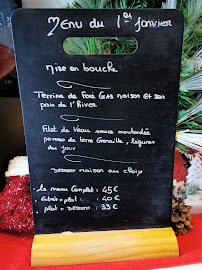 Menu du 1er Janvier
Mise en bouche
Terrine de Foie Gras maison et son
pain de l'hiver
Filet de Veau sauce moutardée
pommes de terre Grenaille, légumes
du jour
Dessert maison au choix
le menu Complet : 45€
plat : 40€
plat + Dessert : 33€